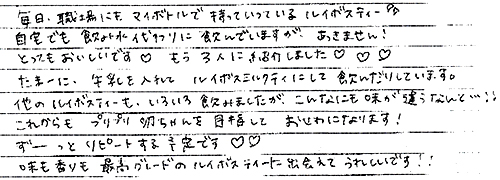 毎日、職場にも マイボトルで 持っていっている ルイボスティー
自宅でも 飲み水代わりに 飲んでいますが、あきません!
とってもおいしいです♡ もう 3人に 紹介しました ♡ ♡ ♡
たまーに、牛乳を入れて ルイボスミルクティにして 飲んだりしています。
他のルイボスティーも、いろいろ 飲みましたが、こんなにも 味が違うなんて…!!
これからも プリプリ ちゃんを 目指して おせわになります!
ずーっと リピートする 予定です♡♡
味も香りも 最高グレードの ルイボスティーに 出会えて うれしいです!!